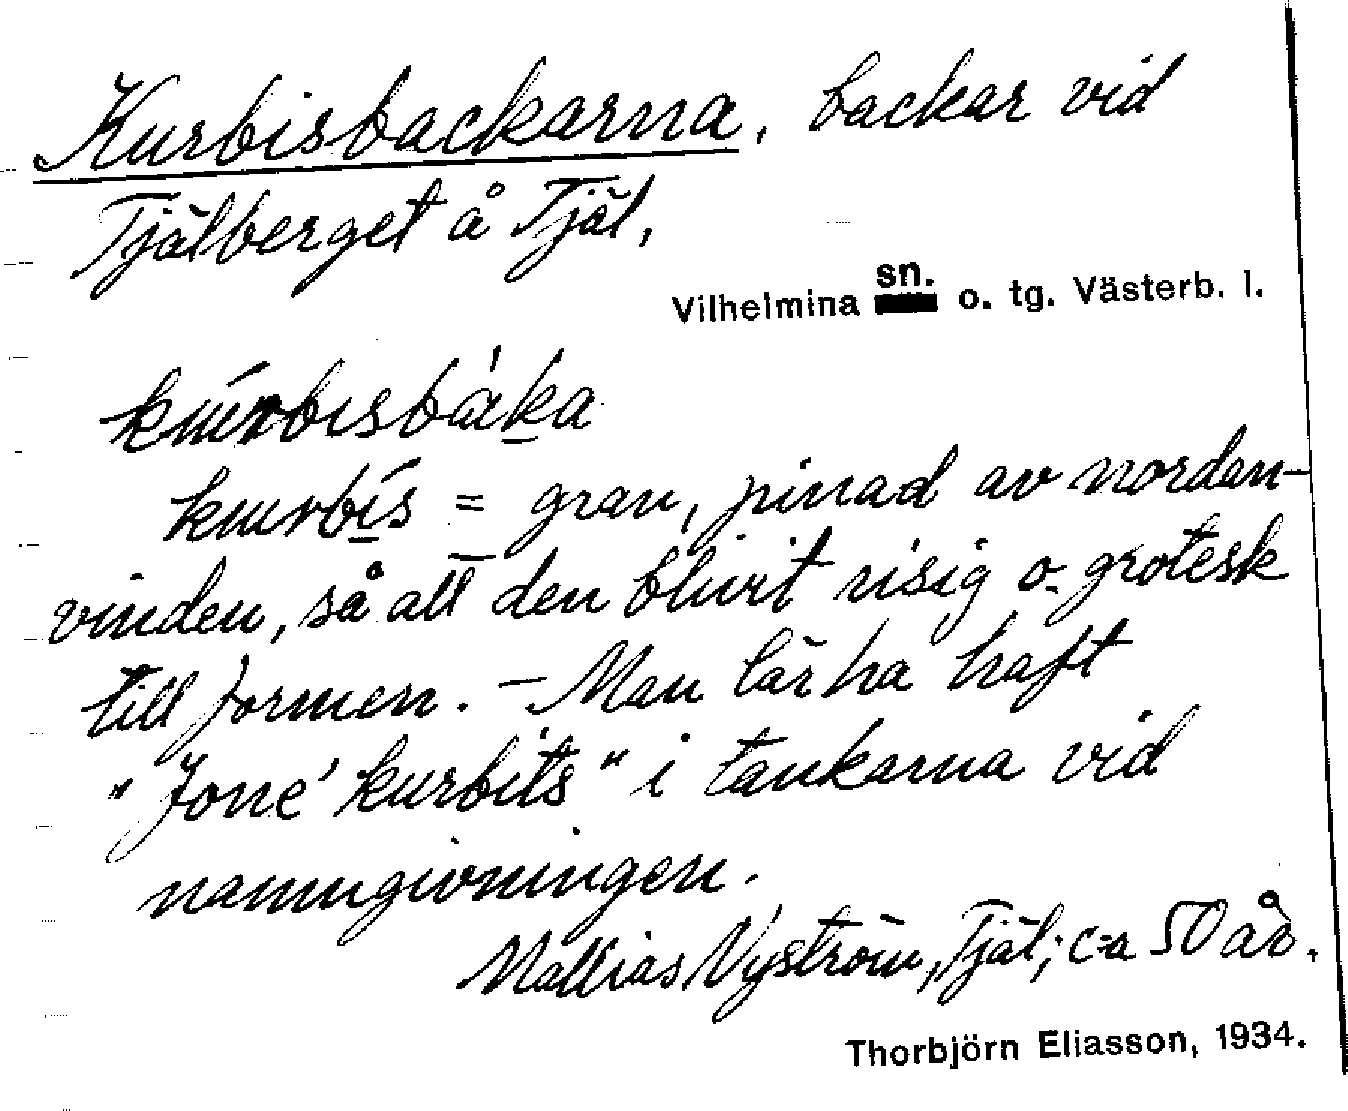 Kurbisbackarna, backar vid
Tjälberget å Tjäl,
Vilhelmina sn. o. tg. Västerb. l.
= gran, pinad av nordan-
vinden, så att den blivit risig o. grotesk
till formen. – Man lär ha haft
"Jone' kurbits" i tankarna vid
namngivningen.
Mattias Nyström, Tjäl; c:a 50 år.
Thorbjörn Eliasson, 1934.